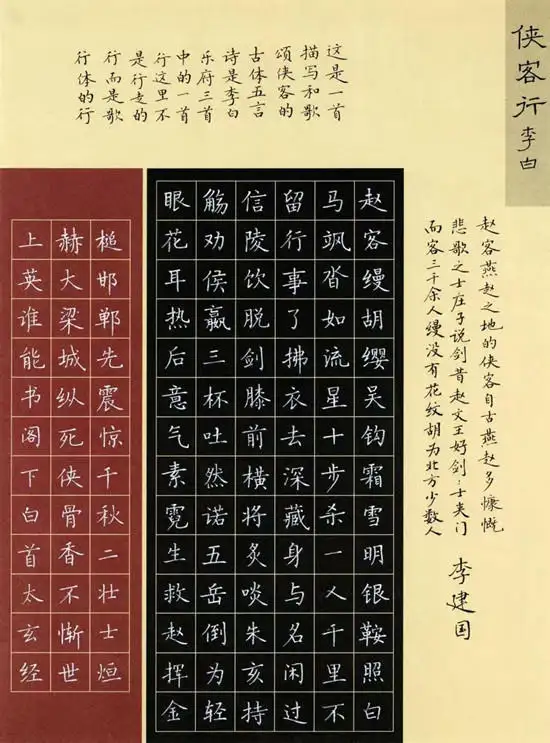 侠客行
李白
这是一首
描写和歌
颂侠客的
古体五言
诗是李白
乐府三首
中的一首
行这里不
是行走的
行而是歌
行体的行
赵客燕赵之地的侠客自古燕赵多慷慨
悲歌之士庄子说剑昔赵文王好剑:士夹门
而客三千余人缦没有花纹胡为北方少数人
李建国
赵客缦胡缨吴钩霜雪明银鞍照白
马飒沓如流星十步杀一人千里不
留行事了拂衣去深藏身与名闲过
信陵饮脱剑膝前横将炙啖朱亥持
觞劝侯嬴三杯吐然诺五岳倒为轻
眼花耳热后意气素霓生救赵挥金
槌邯郸先震惊千秋二壮士烜
赫大梁城纵死侠骨香不惭世
上英谁能书阁下白首太玄经